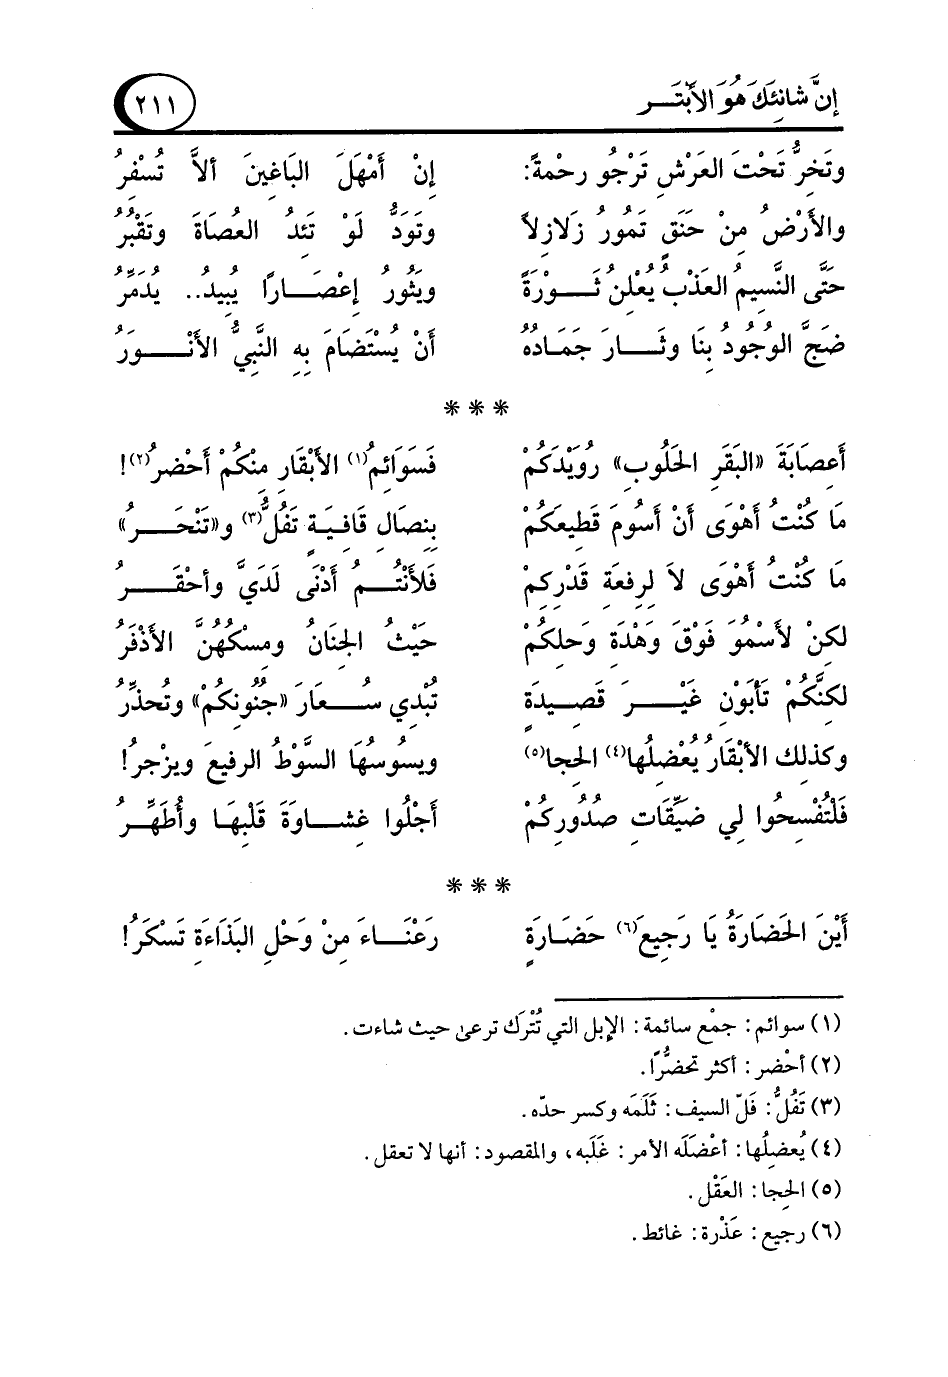 إنَّ شَانِئَكَ هُوَ الأَبْتَـــر
٢١١
وتَخِرُّ تَحْتَ العَرْشِ تَرْجُو رحْمةً: إنْ أَمْهَلَ البَاغِينَ ألاَّ تُسْفِرُ
والأرْضُ مِنْ حَنَقٍ تَمُورُ زَلاَزِلاً وتَوَدُّ لَوْ تَئِدُ العُصَاةَ وتَقْبُرُ
حَتَّى النَّسِيمُ العَذْبُ يُعْلِنُ ثَـــوْرَةً ويَثُورُ إعْصَـــارًا يُبِيدُ.. يُدَمِّرُ
ضَجَّ الوُجُودُ بِنَا وثَـــارَ جَمَادُهُ أَنْ يُسْتَضَامَ بِهِ النَّبِيُّ الأنْـــوَرُ
***
أَعِصَابَةَ «البَقَرِ الحَلُوبِ» رُوَيْدَكُمْ فَسَوَائِمُ(١) الأَبْقَارِ مِنْكُمْ أَحْضَرُ(٢)!
مَا كُنْتُ أَهْوَى أَنْ أَسُومَ قَطِيعَكُمْ بِنِصَالِ قَافِيَةٍ تَفُلُّ(٣) و«تَنْحَـــرُ»
مَا كُنْتُ أَهْوَى لاَ لِرِفعَةِ قَدْرِكِمْ فَلأَنْتُـــمُ أَدْنَى لَدَيَّ وأحْقَـــرُ
لكنْ لأَسْمُوَ فَوْقَ وَهْدَةِ وَحلِكُمْ حَيْثُ الجِنَانُ ومِسْكُهُنَّ الأَذْفَرُ
لكنَّكُمْ تَأبَوْنِ غَيْـــرَ قَصِيدَةٍ تُبْدِي سُـــعَارَ «جُنُونِكُمْ» وتُحذِّرُ
وكذلك الأبْقَارُ يُعْضِلُها(٤) الحِجا(٥) ويسُوسُهَا السَّوْطُ الرفيعَ ويزْجرُ!
فَلْتُفْسِحُوا لِي ضَيِّقَاتِ صُدُورِكُمْ أَجْلُوا غِشـــاوَةَ قَلْبِهَا وأُطَهِّـــرُ
***
أَيْنَ الحَضَارَةُ يَا رَجِيعَ(٦) حَضَـارَةٍ رَعْنَـــاءَ مِنْ وَحْلِ البَذَاءَةِ تَسْكَرُ!
(١) سوائم: جمْع سائمة: الإبل التي تُتْرَك ترعىٰ حيث شاءت.
(٢) أحْضر: أكثر تحضُّرًا.
(٣) تَفُلُّ: فَلّ السيف: ثَلَمَه وكسر حدّه.
(٤) يُعضِلُها: أعْضَلَه الأمر: غَلَبه، والمقصود: أنها لا تعقل.
(٥) الحِجا: العَقْل.
(٦) رجيع: عَذْرة: غائط.